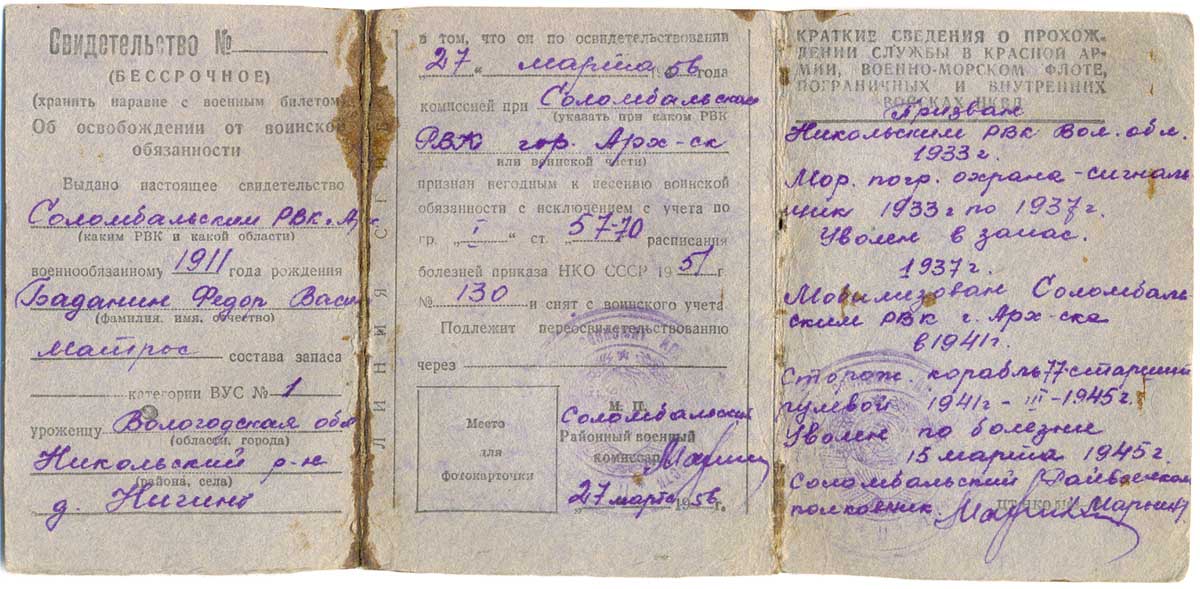 Свидетельство №
(БЕССРОЧНОЕ)
(хранить наравне с военным билетом)
Об освобождении от воинской
обязанности
Выдано настоящее свидетельство
Соломбальским РВК г. Арх
(каким РВК и какой области)
военнообязанному 1911 года рождения
Баданин Федор Васи
(фамилия, имя, отчество)
Матрос состава запаса
категории ВУС № 1
уроженцу Вологодская обл
(области, города)
Никольский р-н
(района, села)
д. Нигино
ЛИНИЯ
в том, что он по освидетельствовании
27 " марта 1956 года
комиссией при Соломбальском
(указать при каком РВК
РВК гор. Арх-ск
или воинской части)
признан негодным к несению воинской
обязанности с исключением с учета по
гр. „ I " ст. „ 57-70 расписания
болезней приказа НКО СССР 1951 г.
№ 130 и снят с воинского учета
Подлежит переосвидетельствованию
через
Место
для
фотокарточки
М. П.
Соломбальский
Районный военный
комиссар
27 марта 1956 г.
КРАТКИЕ СВЕДЕНИЯ О ПРОХОЖ-
ДЕНИИ СЛУЖБЫ В КРАСНОЙ АР-
МИИ, ВОЕННО-МОРСКОМ ФЛОТЕ,
ПОГРАНИЧНЫХ И ВНУТРЕННИХ
ВОЙСКАХ НКВД
Призван
Никольским РВК Вол. обл.
1933 г.
Мор. погр. охрана - сигналь
щик 1933 г по 1937 г.
Уволен в запас.
1937 г.
Мобилизован Соломбаль
ским РВК г. Арх-ска
в 1941 г.
Сторож. корабль 77 старший
рулевой 1941 г - III - 1945 г.
Уволен по болезни
15 марта 1945 г.
Соломбальский Райвоенком
полковник